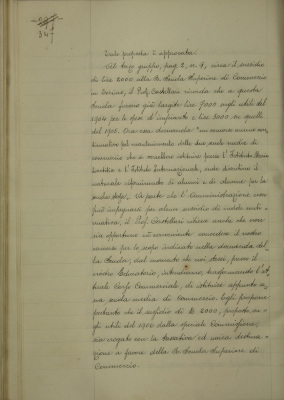 347
Tale proposta è approvata.
Al terzo gruppo, pag. 2, n. 9, circa il sussidio
di lire 2000 alla R. Scuola Superiore di Commercio
in Torino, il Prof. Castellari ricorda che a questa
Scuola furono già largite lire 7000 sugli utili del
1904 per le spese d'impianto e lire 3000 su quelli
del 1905. Ora essa domanda "un nuovo annuo con-
tributo pel mantenimento delle due scuole medie di
commercio che si vorrebbero istituire presso l'Istituto
e l'Istituto Internazionale, onde ottenere il
naturale rifornimento di alunni e di alunne per la
scuola stessa". A parte che l'Amministrazione non
può impegnarsi per alcun sussidio di indole conti-
nuativa, il Prof. Castellari ritiene anche che non
sia opportuno nè conveniente concedere il nostro
concorso per lo scopo indicato nella domanda del-
la Scuola, dal momento che noi stessi, presso il
nostro Educatorio, intendiamo, trasformando l'at-
tuale Corso Commerciale, di istituire appunto u-
na scuola media di Commercio. Egli propone
pertanto che il sussidio di L. 2000, proposto su-
gli utili del 1906 dalla speciale Commissione,
sia erogato con la
zione a favore della R. Scuola Superiore di
Commercio.